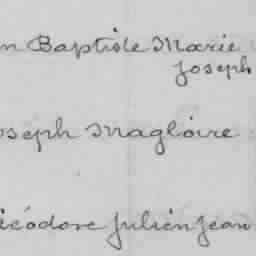 n Baptiste Marie
Joseph
oseph Magloire
éodore Julien Jean